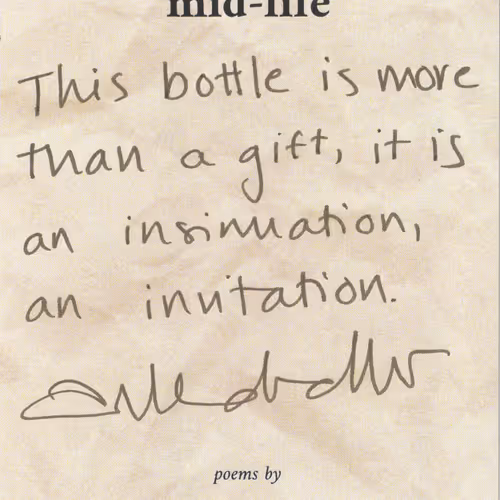 mid-life
This bottle is more
than a gift, it is
an insinuation,
an invitation.
poems by